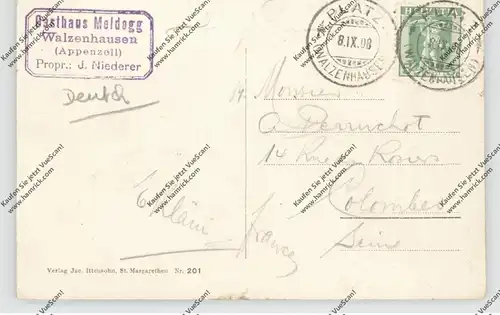 Gasthaus Meldegg
Walzenhausen
(Appenzell)
Propr.: J. Niederer
PLATZ
8.IX.08
(WALZENHAUSEN)
PLATZ
(WALZENHAUSEN)
Deutsch
Monsieur
A Perruchot
14 Rue Rosiers
Colombes
Seine
France
Verlag Jac. Ittensohn, St. Margarethen Nr. 201
Kaufen Sie jetzt VueScan!
www.hamrick.com